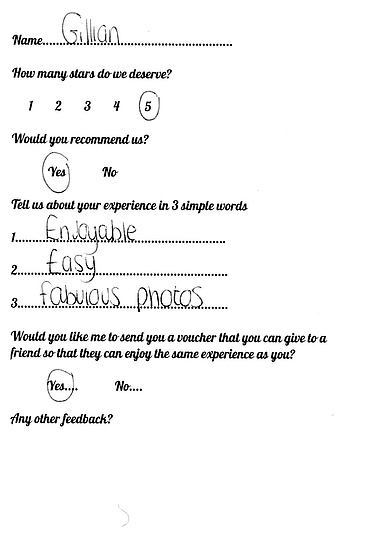 Name.....Gillian.....
How many stars do we deserve?
1 2 3 4 5
Would you recommend us?
Yes No
Tell us about your experience in 3 simple words
1.....Enjoyable.....
2.....Easy.....
3.....fabulous photos.....
Would you like me to send you a voucher that you can give to a
friend so that they can enjoy the same experience as you?
Yes.... No....
Any other feedback?